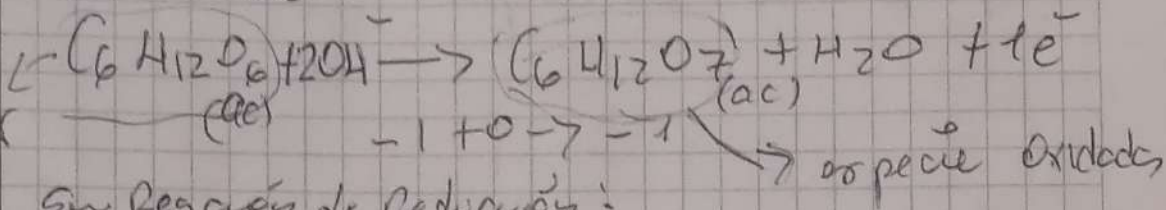 C6H12O6(ac) + 2OH⁻ → C6H12O7(ac) + H2O + 1e⁻
-1 + 0 → -1 → especie Oxidada